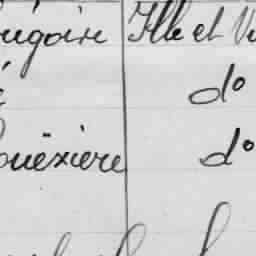 ougoire Ille et Vi
é do
ouëxière do